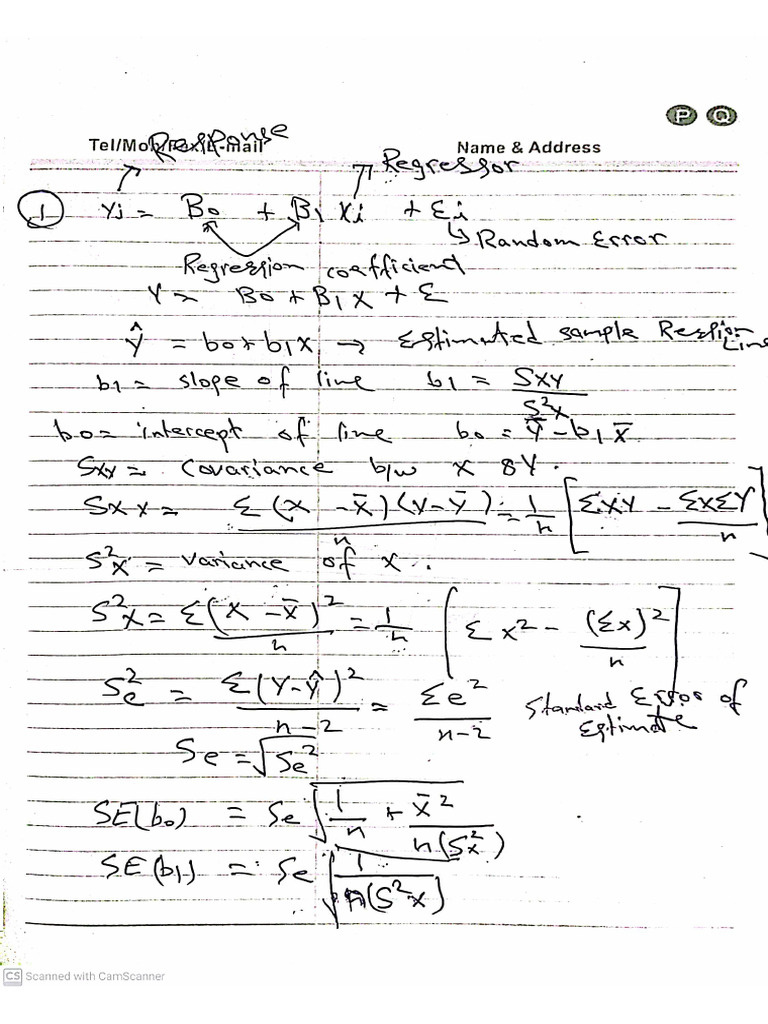 P Q
Response
Tel/Mob/Fax/E-mail Name & Address
Regressor
① Yi = B₀ + B₁ Xi + Ɛi
↳ Random Error
Regression coefficient
Y = B₀ + B₁ X + Ɛ
Ŷ = b₀ + b₁x → Estimated sample Line
b₁ = slope of line b₁ = Sxy / S²x
b₀ = intercept of line b₀ = Ȳ - b₁ X̄
Sxy = Covariance b/w X & Y.
Sxx = Σ(X - X̄)(Y - Ȳ) / n = 1/n [ΣXY - ΣXΣY / n]
S²x = variance of x.
S²x = Σ(X - X̄)² / n = 1/n [Σx² - (Σx)² / n]
Se² = Σ(Y - Ŷ)² / n-2 = Σe² / n-2 Standard Error of Estimate
Se = √Se²
SE(b₀) = Se √(1/n + X̄² / n(Sx²))
SE(b₁) = Se √(1 / n(S²x))
CS Scanned with CamScanner